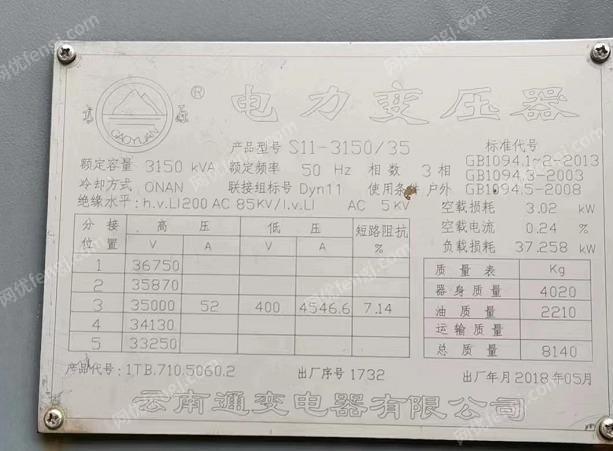 高原® 电力变压器
GAOYUAN
产品型号 S11-3150/35 标准代号
额定容量 3150 kVA 额定频率 50 Hz 相数 3相 GB1094.1~2-2013
GB1094.3-2003
冷却方式 ONAN 联接组标号 Dyn11 使用条件 户外 GB1094.5-2008
绝缘水平: h.v.LI200 AC 85KV/l.v.LI AC 5KV 空载损耗 3.02 kW
空载电流 0.24 %
负载损耗 37.258 kW
分接位置 高压 V A 低压 V A 短路阻抗 %
1 36750
2 35870
3 35000 52 400 4546.6 7.14
4 34130
5 33250
质量表 Kg
器身质量 4020
油质量 2210
运输质量
总质量 8140
产品代号: 1TB.710.5060.2 出厂序号 1732 出厂年月 2018年05月
云南通变电器有限公司
网优fengj.com